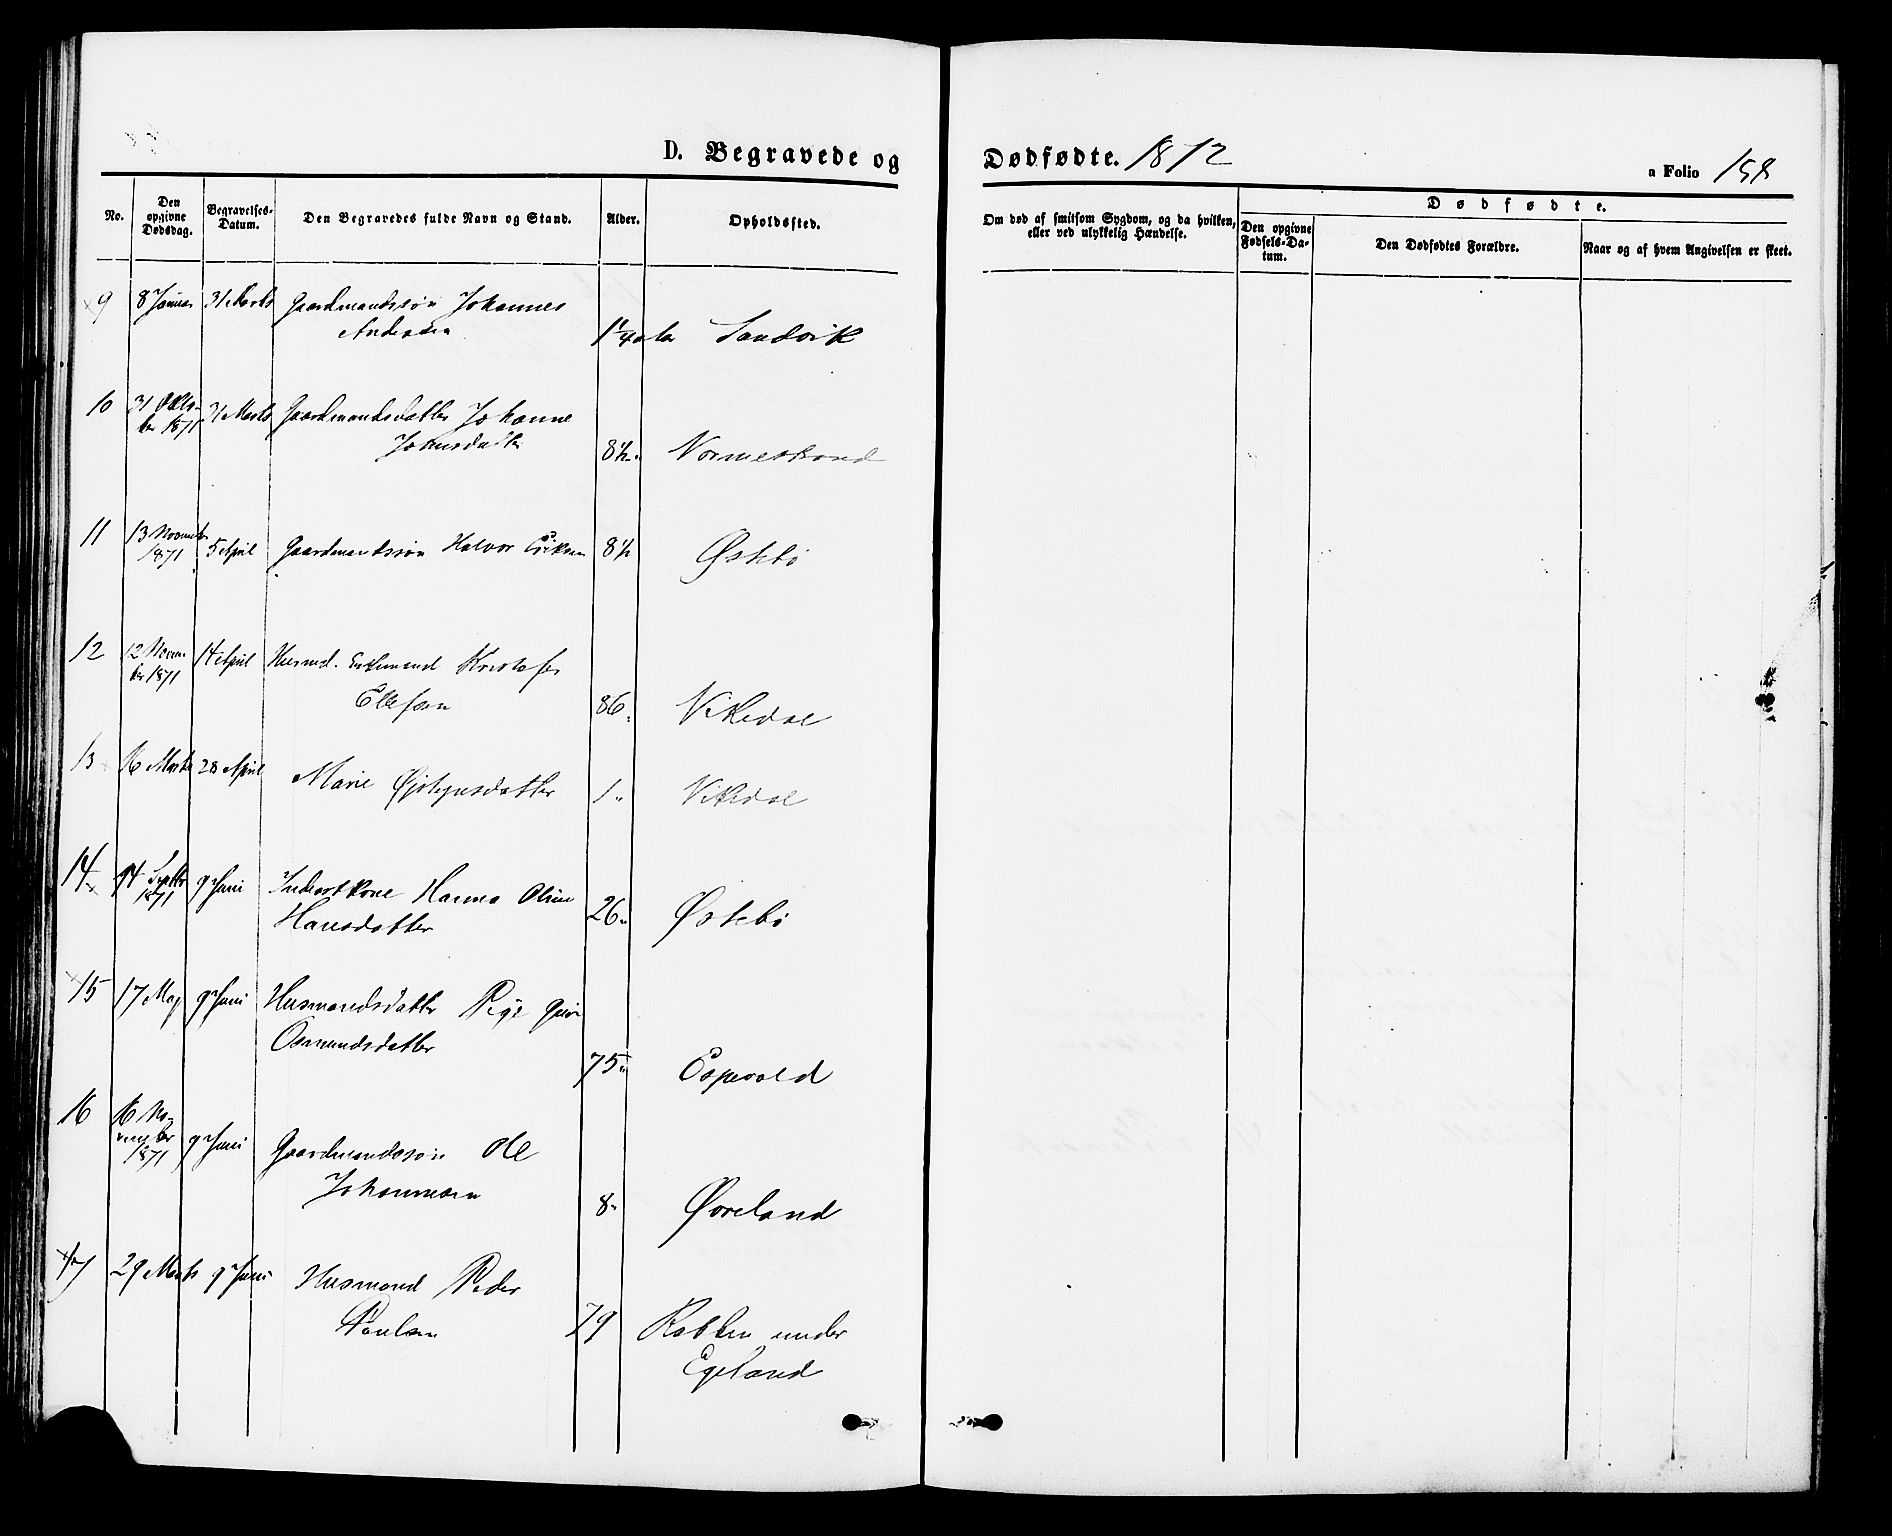 D. Begravede og Dødfødte. 1872
a Folio 158
No.
Den opgivne Dødsdag.
Begravelses-Datum.
Den Begravedes fulde Navn og Stand.
Alder.
Opholdssted.
Om død af smitsom Sygdom, og da hvilken,
eller ved ulykkelig Hændelse.
Dødfødte.
Den opgivne Fødsels-Datum.
Den Dødfødtes Forældre.
Naar og af hvem Angivelsen er skeet.
9 8 Januar 31 Marts Gaardmandssøn Johannes
Andersen 1 1/4 Sandvik
10 31 Okto- 31 Marts Gaardmandsdatter Johanne
ber 1871 Johnsdatter 8 1/2
11 13 November 5 April Gaardmandssøn Halvor Eriksen 8 1/2 Østebø
1871
12 12 Novem- 14 April Husmd. Enkemand Kristofer
ber 1871 Ellefsen 86 Vikedal
13 16 Marts 28 April Marie 1 Vikedal
14 14 Septbr 9 Juni Inderstkone Hanna Oline
1871 Hansdatter 26 Østebø
15 17 Maj 9 Juni Husmandsdatter Pige Guri
Osmundsdatter 75 Espevold
16 16 No-
vember 9 Juni Gaardmandssøn Ole
1871 Johannesen 8 Øvreland
17 29 Marts 9 Juni Husmand Peder
Poulsen 79 Rabben under
Egeland